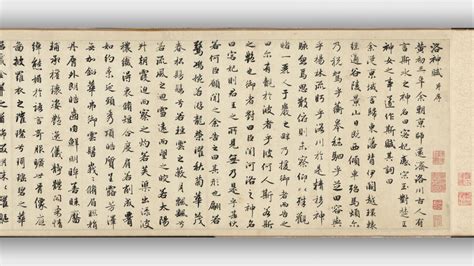 洛神賦 并序
黃初三年余朝京師還濟洛川古人有
言斯水之神名曰宓妃感宋玉對楚王
神女之事遂作斯賦其詞曰
余從京域言歸東藩背伊闕越轘轅
經通谷陵景山日既西傾車殆馬煩爾
乃稅駕乎蘅皋秣駟乎芝田容與
乎楊林流眄乎洛川於是精移神
駭忽焉思散俯則未察仰以殊觀
睹一麗人于巖之畔乃援御者而告
之曰爾有覿於彼者乎彼何人斯若斯
之豔也御者對曰臣聞河洛之神名
曰宓妃則君王之所見無乃是乎其狀
若何臣願聞之余告之曰其形也翩若
驚鴻婉若游龍榮曜秋菊華茂
春松髣髴兮若輕雲之蔽月飄颻兮
若流風之迴雪遠而望之皎若太陽
升朝霞迫而察之灼若芙蕖出淥波
穠纖得衷脩短合度肩若削成腰
如約素延頸秀項皓質呈露芳澤
無加鉛華弗御雲髻峨峨脩眉聯娟
丹脣外朗皓齒內鮮明眸善睞靨
輔承權瓌姿豔逸儀靜體閑柔情
綽態媚於語言奇服曠世骨像應
圖披羅衣之璀璨兮珥瑤碧之華